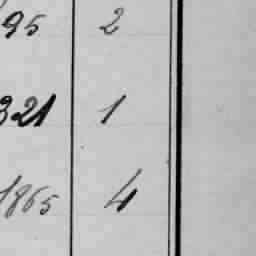 95 2
321 1
1865 4